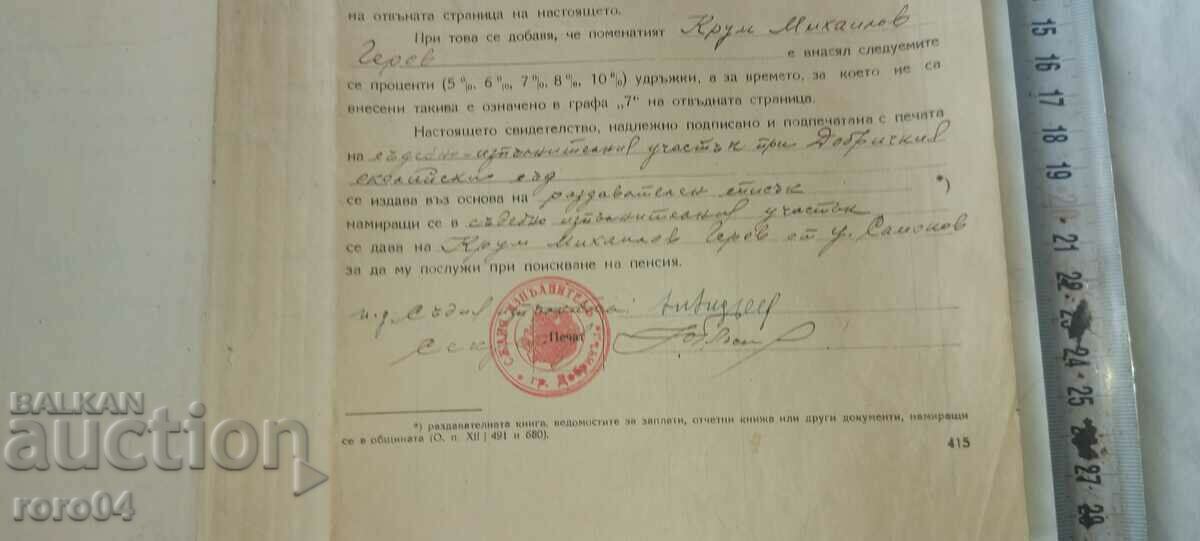 на отвъната страница на настоящето.
При това се добавя, че поменатият Крум Михаилов
Геров е внасял следуемите
се проценти (5 %, 6 %, 7 %, 8 %, 10 %) удръжки, а за времето, за което не са
внесени такива е означено в графа „7" на отвъдната страница.
Настоящето свидетелство, надлежно подписано и подпечатана с печата
на съдебно-изпълнителния участък при Добричкия
околийски съд
се издава въз основа на раздавателен списък *)
намиращи се в съдебно изпълнителния участък
се дава на Крум Михаилов Геров от гр. Самоков
за да му послужи при поискване на пенсия.
и. д. Съдия
Печат
СЪДИЯ ИЗПЪЛНИТЕЛЬ
гр. Добричъ
*) раздавателната книга, ведомостите за заплати, отчетни книжа или други документи, намиращи
се в общината (О. п. XII | 491 и 680).
415
BALKAN
auction
roro04
15 16 17 18 19 20 21 22 23 24 25 26 27 28